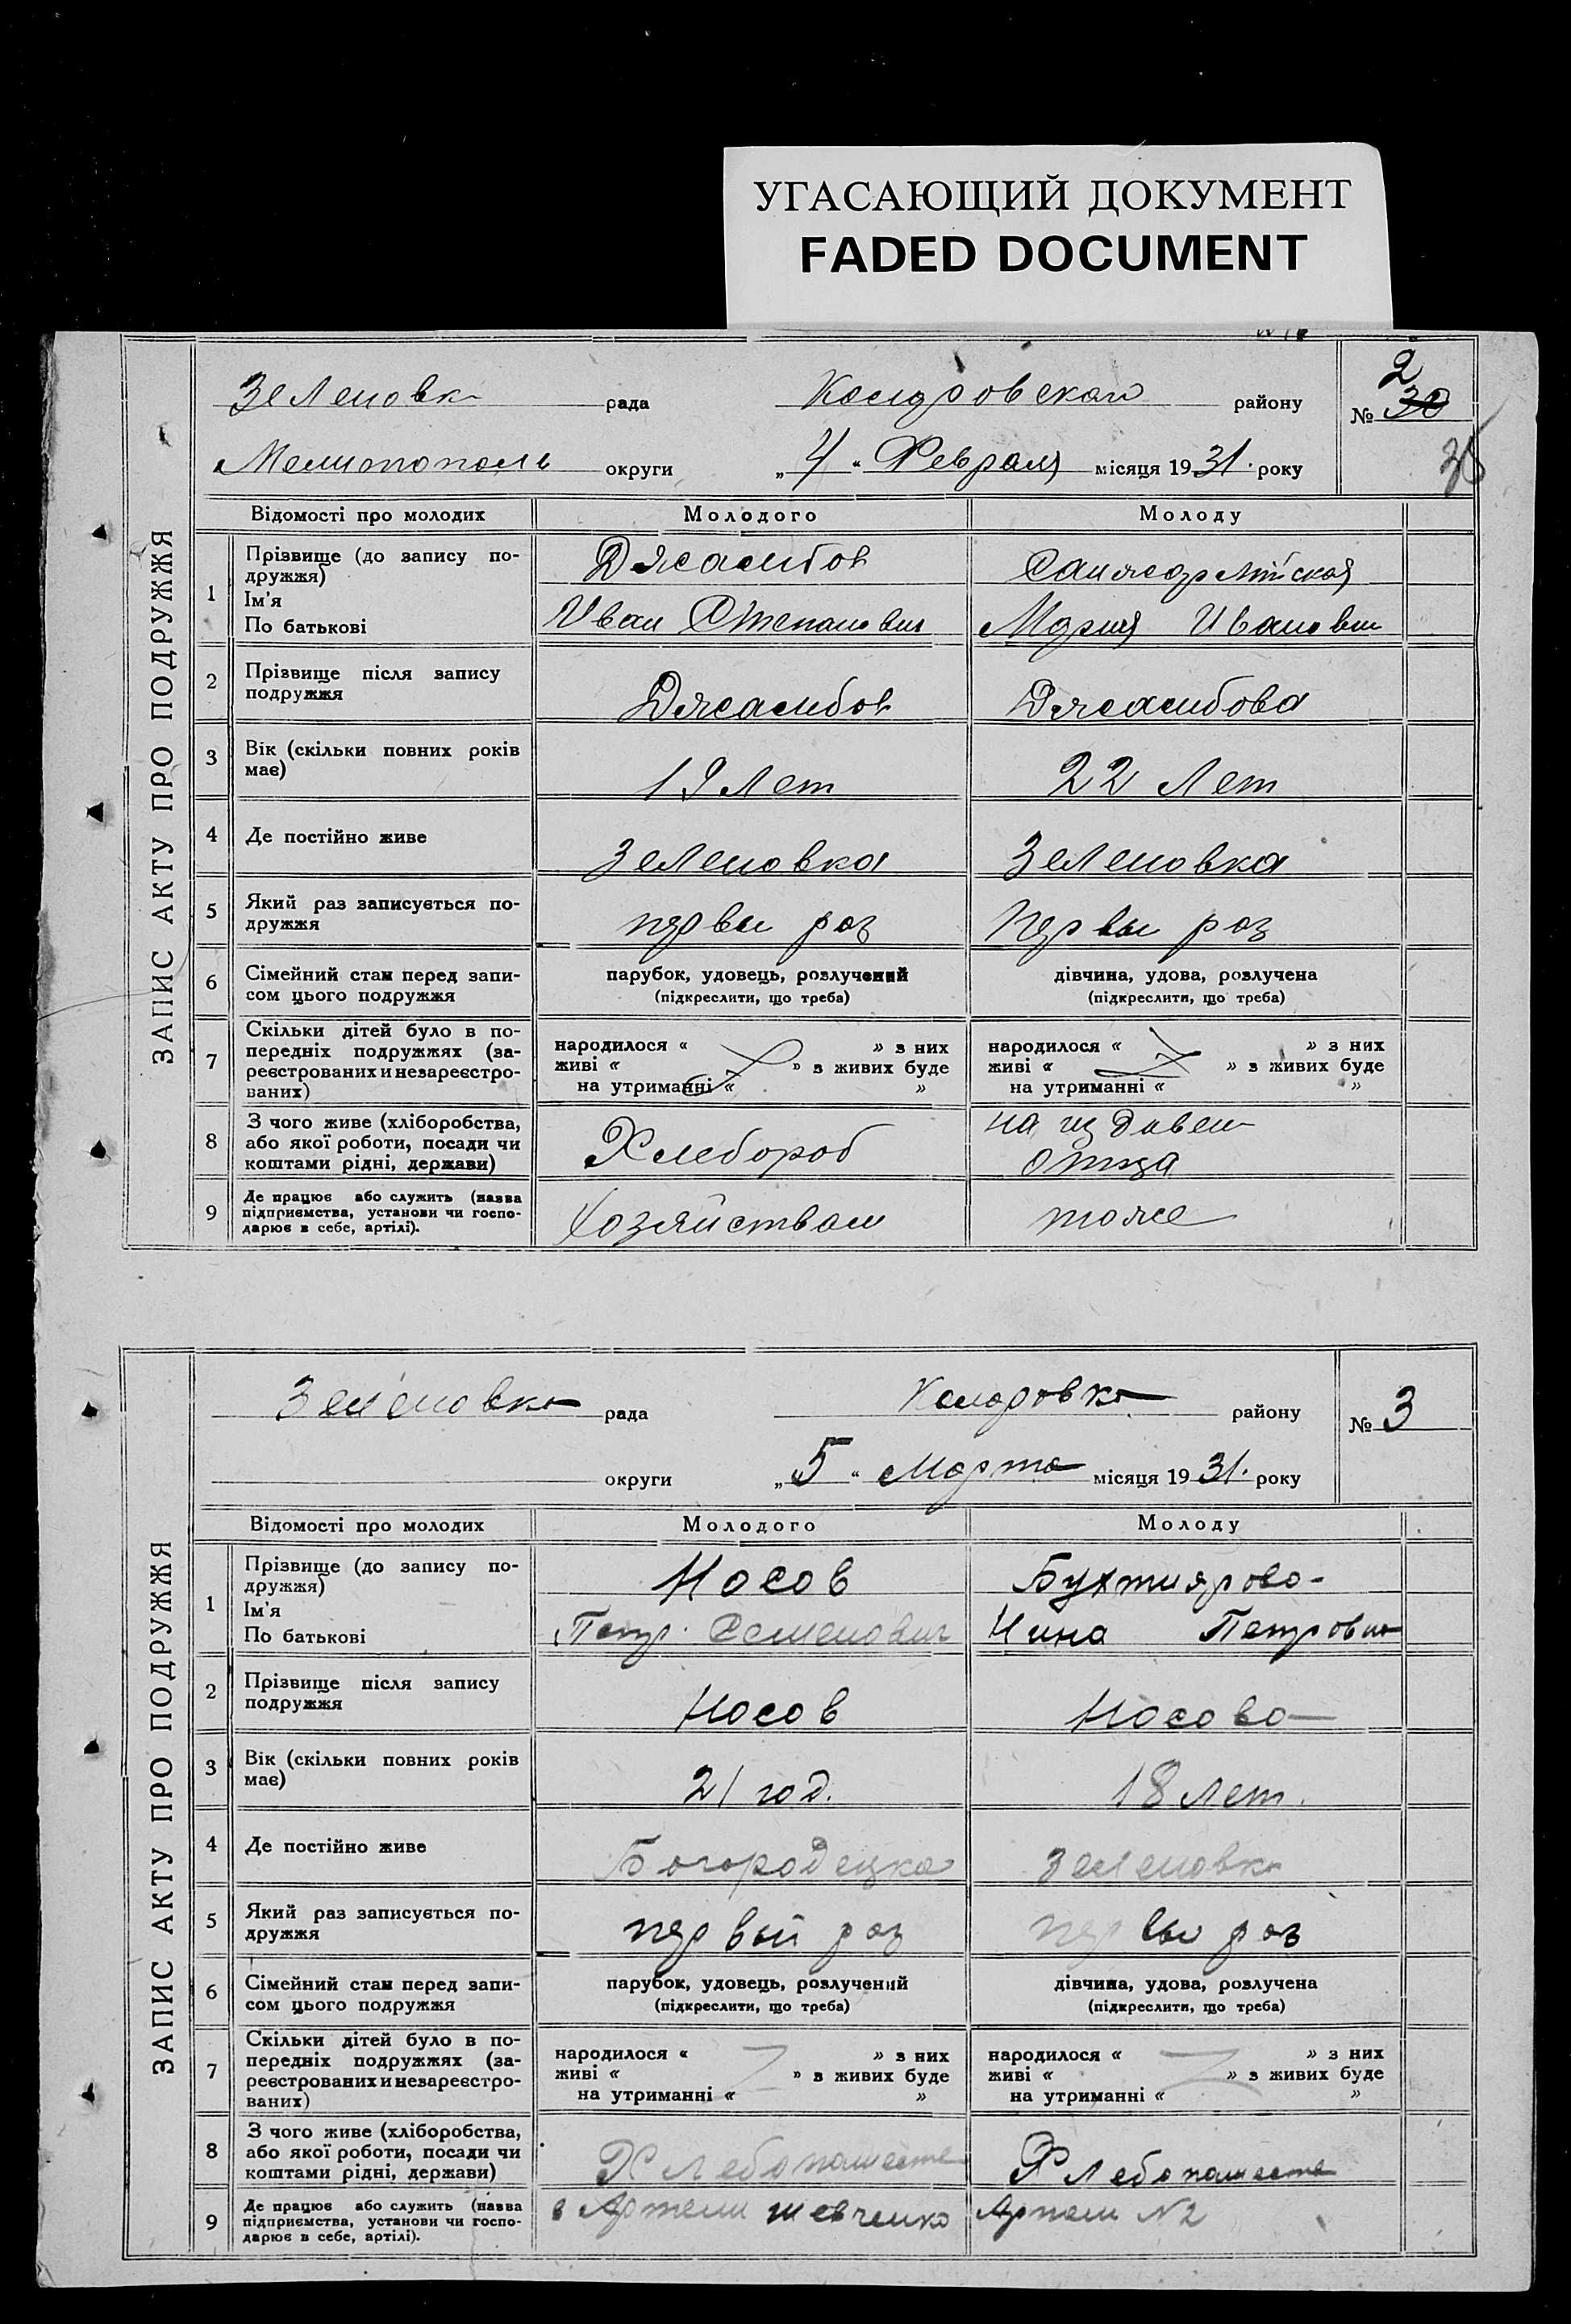 УГАСАЮЩИЙ ДОКУМЕНТ
FADED DOCUMENT
ЗАПИС АКТУ ПРО ПОДРУЖЖЯ
Зеленовк рада районy
№ 2 30
38
Мелитополь округи „4“ Февраля місяця 1931. року
Відомості про молодих Молодого Молоду
1 Прізвище (до запису по-
дружжя)
Ім'я
По батькові
Джамбов
Иван Степанович Мария Иванови
2 Прізвище після запису
подружжя
Джамбов Джамбова
3 Вік (скільки повних років
має)
19 лет 22 лет
4 Де постійно живе
Зеленовка Зеленовка
5 Який раз записується по-
дружжя
первы раз первы раз
6 Сімейний стан перед запи-
сом цього подружжя
парубок, удовець, розлучений дівчина, удова, розлучена
(підкреслити, що треба) (підкреслити, що треба)
7 Скільки дітей було в по-
передніх подружжях (за-
реєстрованих и незареєстро-
ваних)
народилося « » з них народилося « » з них
живі « » з живих буде живі « » з живих буде
на утриманні « » на утриманні « »
8 З чого живе (хліборобства,
або якої роботи, посади чи
коштами рідні, держави)
Хлебороб
на иждивен
отца
9 Де працює або служить (назва
підприємства, установи чи госпо-
дарює в себе, артілі).
Хозяйством тоже
ЗАПИС АКТУ ПРО ПОДРУЖЖЯ
Зеленовка рада району
№ 3
округи „5“ Марта місяця 1931. року
Відомості про молодих Молодого Молоду
1 Прізвище (до запису по-
дружжя)
Ім'я
По батькові
Носов Бухтиярова
Петр. Семенович Нина Петровна
2 Прізвище після запису
подружжя
Носов Носова
3 Вік (скільки повних років
має)
21 год. 18 лет.
4 Де постійно живе
Богородецка Зеленовка
5 Який раз записується по-
дружжя
первый раз первы раз
6 Сімейний стан перед запи-
сом цього подружжя
парубок, удовець, розлучений дівчина, удова, розлучена
(підкреслити, що треба) (підкреслити, що треба)
7 Скільки дітей було в по-
передніх подружжях (за-
реєстрованих и незареєстро-
ваних)
народилося « » з них народилося « » з них
живі « » з живих буде живі « » з живих буде
на утриманні « » на утриманні « »
8 З чого живе (хліборобства,
або якої роботи, посади чи
коштами рідні, держави)
9 Де працює або служить (назва
підприємства, установи чи госпо-
дарює в себе, артілі).
в Артели шевченко Артели №2